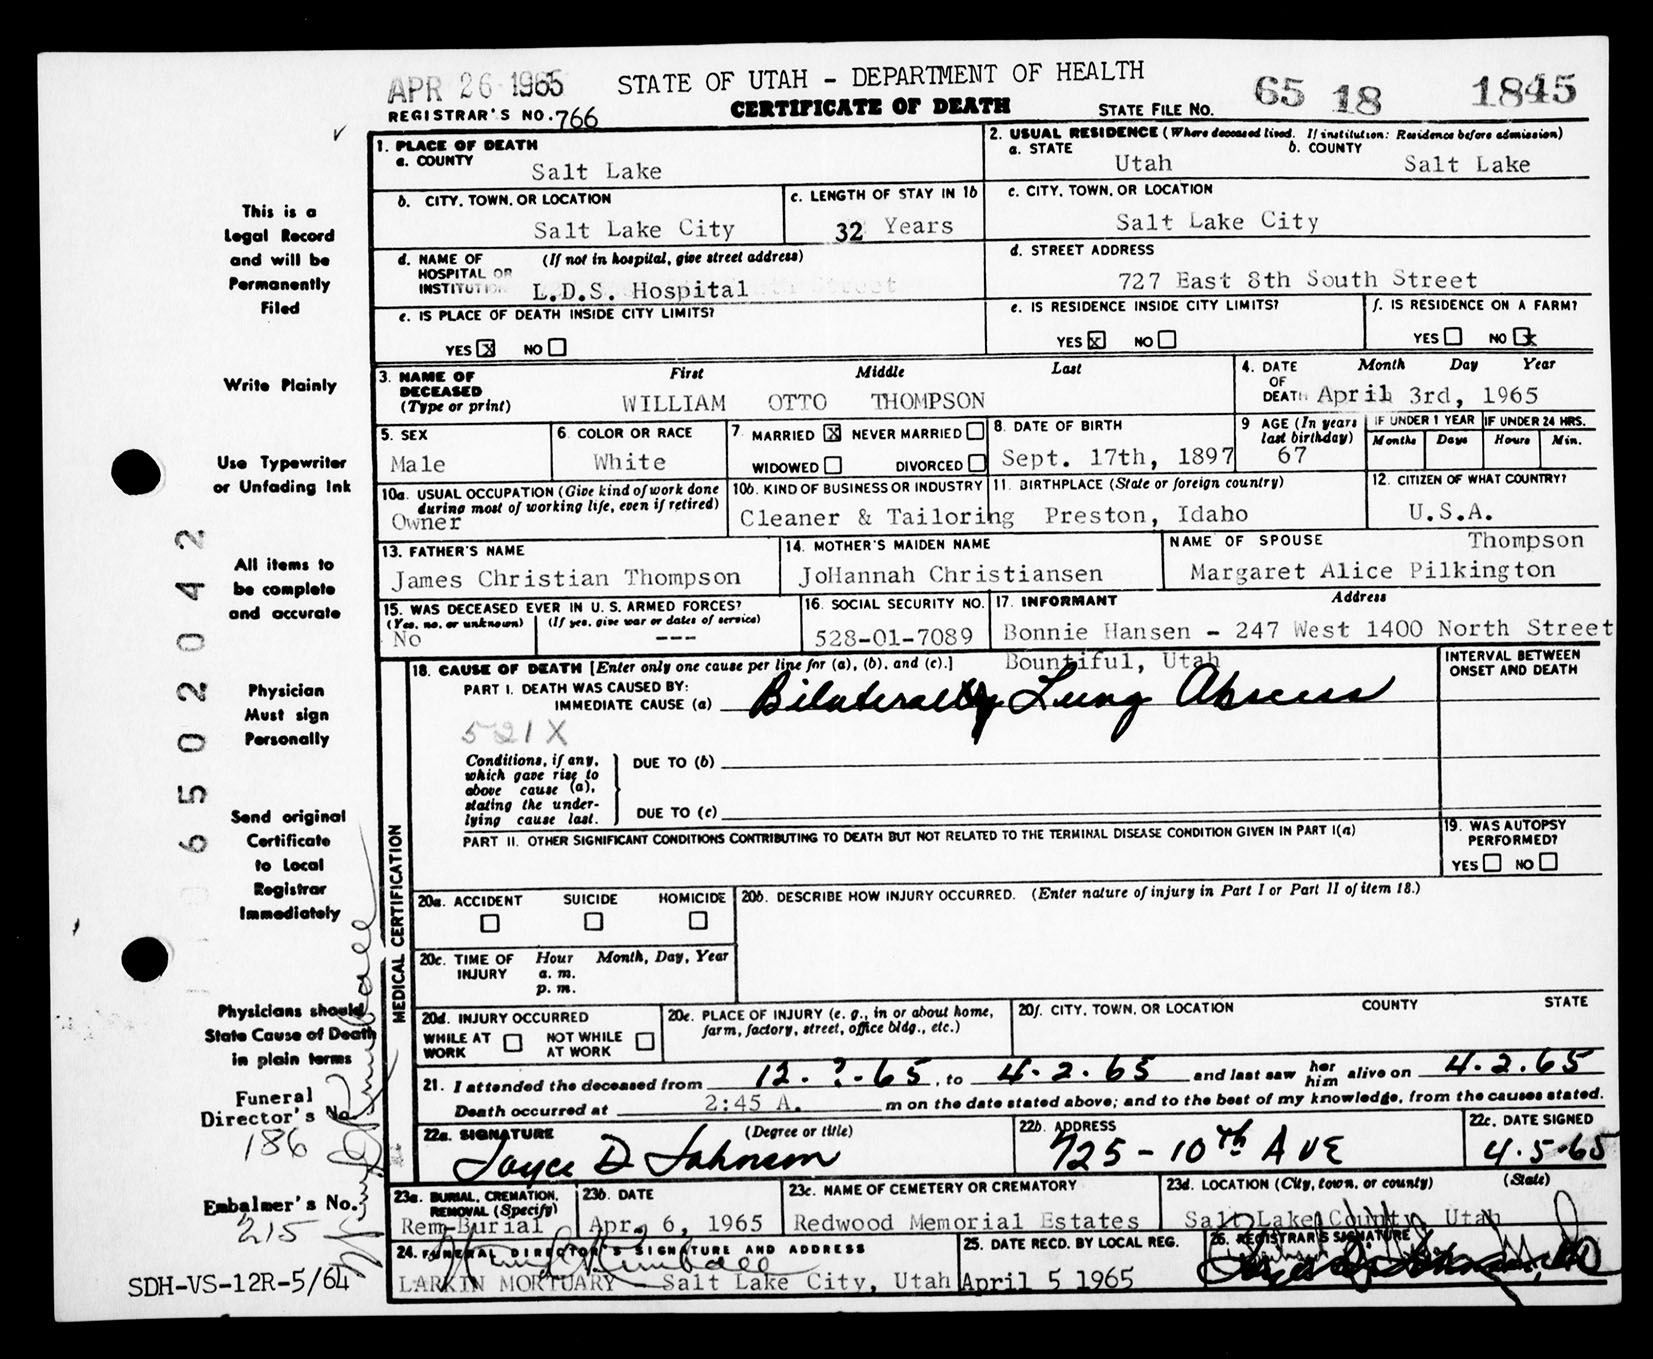 APR 26 1965 STATE OF UTAH - DEPARTMENT OF HEALTH 65 18 1845
REGISTRAR'S NO. 766 CERTIFICATE OF DEATH STATE FILE NO.
1. PLACE OF DEATH
a. COUNTY Salt Lake
2. USUAL RESIDENCE (Where deceased lived. If institution: Residence before admission)
a. STATE Utah b. COUNTY Salt Lake
b. CITY, TOWN, OR LOCATION Salt Lake City
c. LENGTH OF STAY IN 1b 32 Years
c. CITY, TOWN, OR LOCATION Salt Lake City
d. NAME OF HOSPITAL OR INSTITUTION (If not in hospital, give street address)
L.D.S. Hospital
d. STREET ADDRESS
727 East 8th South Street
e. IS PLACE OF DEATH INSIDE CITY LIMITS?
YES X NO
e. IS RESIDENCE INSIDE CITY LIMITS?
YES X NO
f. IS RESIDENCE ON A FARM?
YES NO X
3. NAME OF DECEASED (Type or print) First Middle Last
WILLIAM OTTO THOMPSON
4. DATE OF DEATH Month Day Year
April 3rd, 1965
5. SEX Male
6. COLOR OR RACE White
7. MARRIED X NEVER MARRIED
WIDOWED DIVORCED
8. DATE OF BIRTH Sept. 17th, 1897
9 AGE (In years last birthday) 67
IF UNDER 1 YEAR Months Days
IF UNDER 24 HRS. Hours Min.
10a. USUAL OCCUPATION (Give kind of work done during most of working life, even if retired)
Owner
10b. KIND OF BUSINESS OR INDUSTRY
Cleaner & Tailoring
11. BIRTHPLACE (State or foreign country)
Preston, Idaho
12. CITIZEN OF WHAT COUNTRY?
U.S.A.
13. FATHER'S NAME
James Christian Thompson
14. MOTHER'S MAIDEN NAME
JoHannah Christiansen
NAME OF SPOUSE Thompson
Margaret Alice Pilkington
15. WAS DECEASED EVER IN U.S. ARMED FORCES?
(Yes, no, or unknown) (If yes, give war or dates of service)
No ---
16. SOCIAL SECURITY NO.
528-01-7089
17. INFORMANT Address
Bonnie Hansen - 247 West 1400 North Street
Bountiful, Utah
MEDICAL CERTIFICATION
18. CAUSE OF DEATH [Enter only one cause per line for (a), (b), and (c).]
INTERVAL BETWEEN ONSET AND DEATH
PART I. DEATH WAS CAUSED BY:
IMMEDIATE CAUSE (a) Bilateral Lung Abscess
521X
Conditions, if any, which gave rise to above cause (a), stating the underlying cause last.
DUE TO (b)
DUE TO (c)
PART II. OTHER SIGNIFICANT CONDITIONS CONTRIBUTING TO DEATH BUT NOT RELATED TO THE TERMINAL DISEASE CONDITION GIVEN IN PART I(a)
19. WAS AUTOPSY PERFORMED?
YES NO
20a. ACCIDENT SUICIDE HOMICIDE
20b. DESCRIBE HOW INJURY OCCURRED. (Enter nature of injury in Part I or Part II of item 18.)
20c. TIME OF INJURY Hour Month, Day, Year
a. m.
p. m.
20d. INJURY OCCURRED
WHILE AT WORK NOT WHILE AT WORK
20e. PLACE OF INJURY (e. g., in or about home, farm, factory, street, office bldg., etc.)
20f. CITY, TOWN, OR LOCATION COUNTY STATE
21. I attended the deceased from 12.?.65, to 4.2.65 and last saw her him alive on 4.2.65
Death occurred at 2:45 A. m on the date stated above; and to the best of my knowledge, from the causes stated.
22a. SIGNATURE (Degree or title)
Joyce D Johnson
22b. ADDRESS
725 - 10th AVE
22c. DATE SIGNED
4.5.65
23a. BURIAL, CREMATION, REMOVAL (Specify)
Rem-Burial
23b. DATE
Apr. 6, 1965
23c. NAME OF CEMETERY OR CREMATORY
Redwood Memorial Estates
23d. LOCATION (City, town, or county) (State)
Salt Lake County, Utah
24. FUNERAL DIRECTOR'S SIGNATURE AND ADDRESS
LARKIN MORTUARY - Salt Lake City, Utah
25. DATE RECD. BY LOCAL REG.
April 5 1965
26. REGISTRAR'S SIGNATURE
This is a
Legal Record
and will be
Permanently
Filed
Write Plainly
Use Typewriter
or Unfading Ink
All items to
be complete
and accurate
Physician
Must sign
Personally
Send original
Certificate
to Local
Registrar
Immediately
Physicians should
State Cause of Death
in plain terms
Funeral
Director's No.
186
Embalmer's No.
215
SDH-VS-12R-5/64
6502042